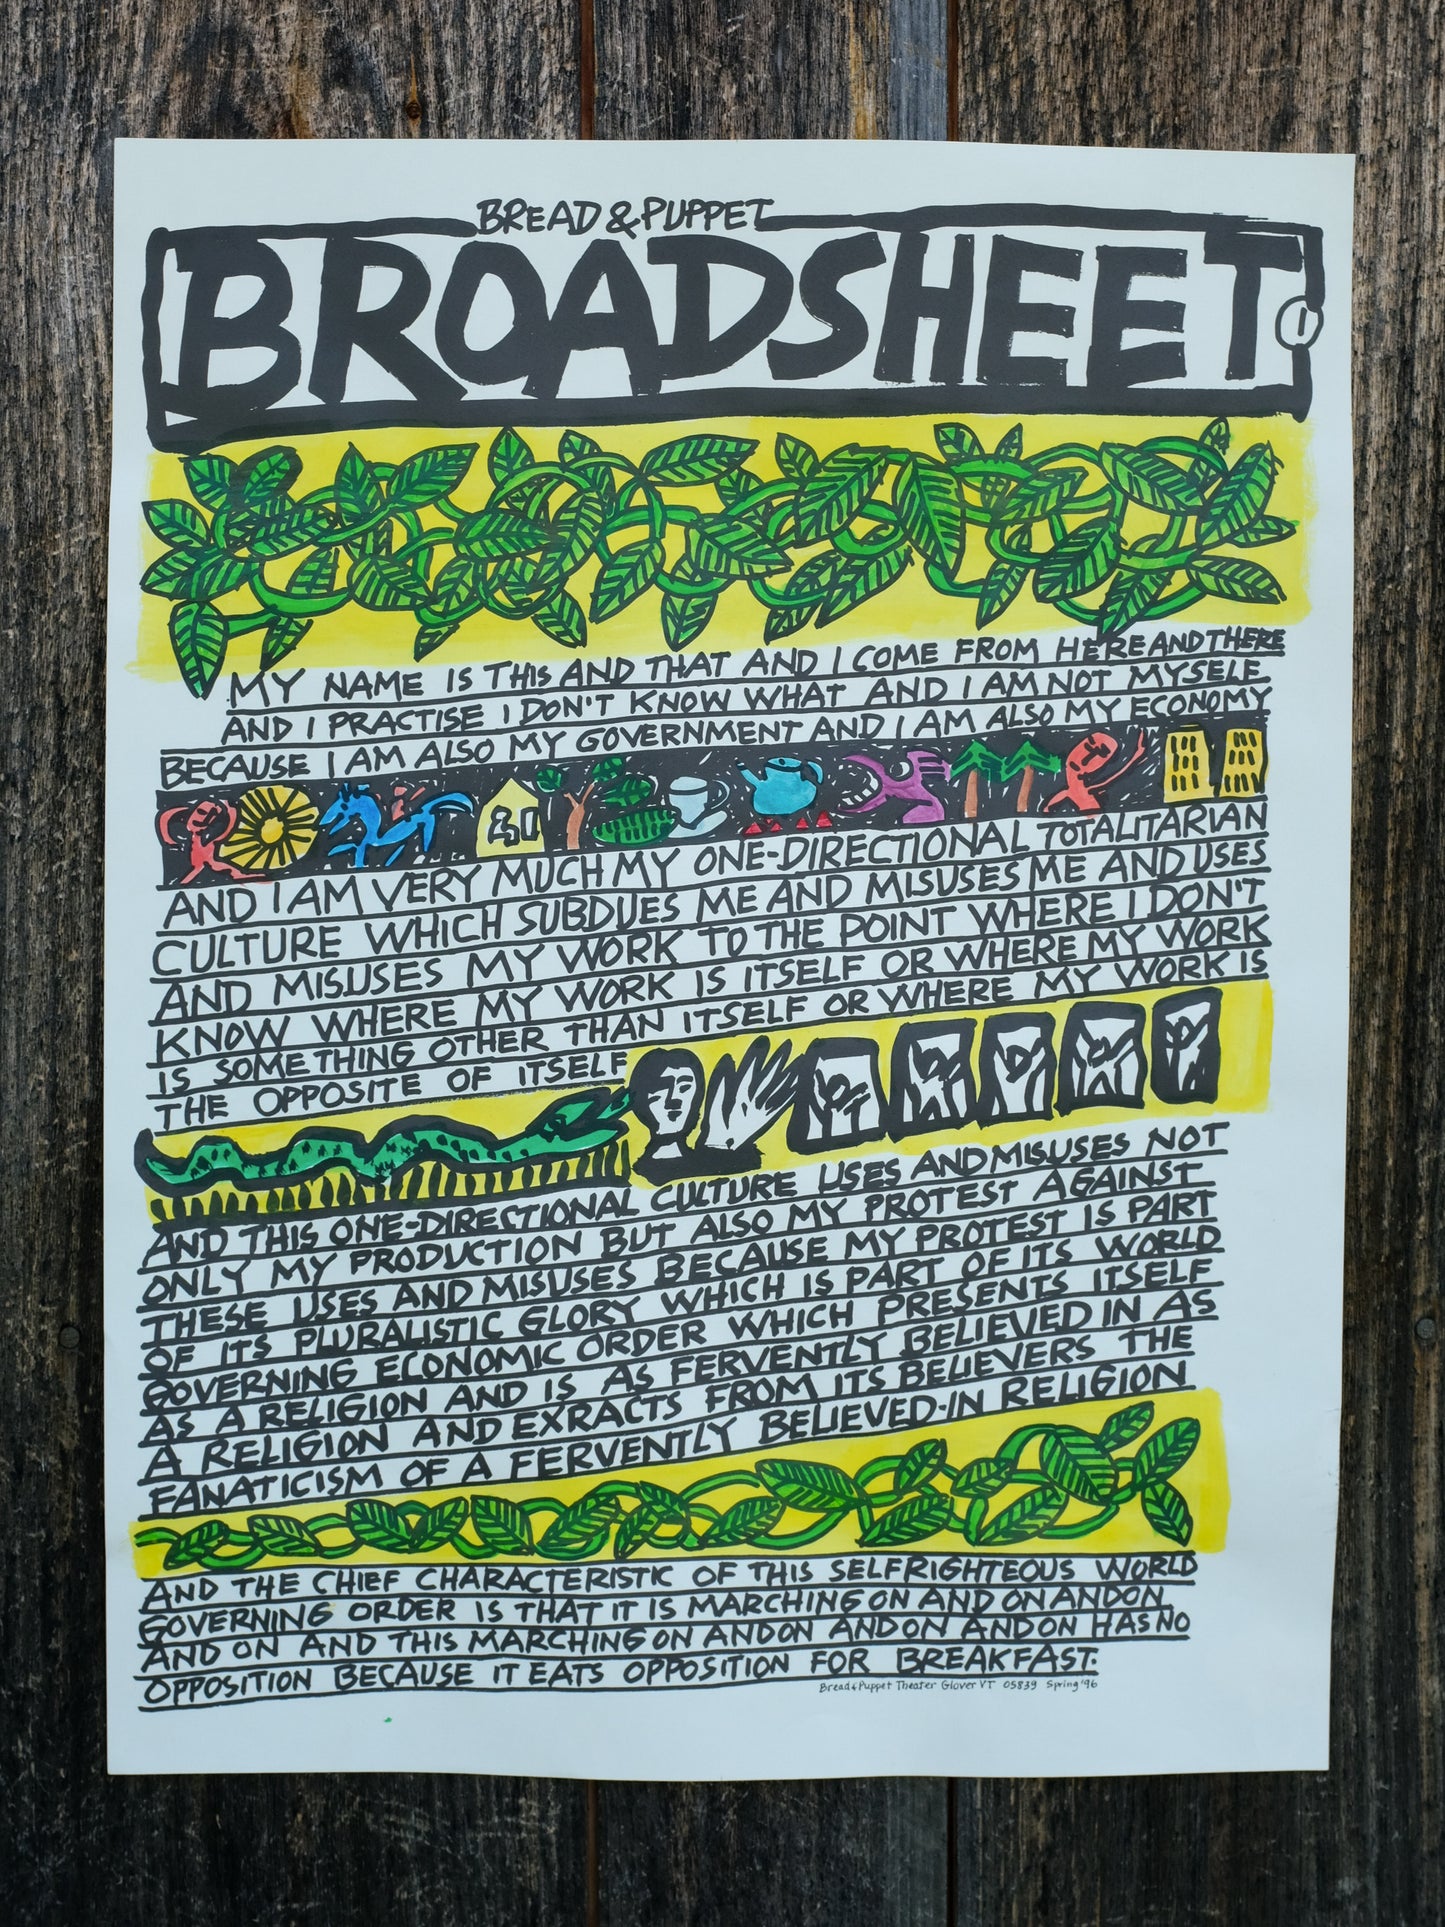 BREAD & PUPPET
BROADSHEET
1
MY NAME IS THIS AND THAT AND I COME FROM HERE AND THERE
AND I PRACTISE I DON'T KNOW WHAT AND I AM NOT MYSELF
BECAUSE I AM ALSO MY GOVERNMENT AND I AM ALSO MY ECONOMY
AND I AM VERY MUCH MY ONE-DIRECTIONAL TOTALITARIAN
CULTURE WHICH SUBDUES ME AND MISUSES ME AND USES
AND MISUSES MY WORK TO THE POINT WHERE I DON'T
KNOW WHERE MY WORK IS ITSELF OR WHERE MY WORK
IS SOMETHING OTHER THAN ITSELF OR WHERE MY WORK IS
THE OPPOSITE OF ITSELF
AND THIS ONE-DIRECTIONAL CULTURE USES AND MISUSES NOT
ONLY MY PRODUCTION BUT ALSO MY PROTEST AGAINST
THESE USES AND MISUSES BECAUSE MY PROTEST IS PART
OF ITS PLURALISTIC GLORY WHICH IS PART OF ITS WORLD
GOVERNING ECONOMIC ORDER WHICH PRESENTS ITSELF
AS A RELIGION AND IS AS FERVENTLY BELIEVED IN AS
A RELIGION AND EXRACTS FROM ITS BELIEVERS THE
FANATICISM OF A FERVENTLY BELIEVED-IN RELIGION
AND THE CHIEF CHARACTERISTIC OF THIS SELFRIGHTEOUS WORLD
GOVERNING ORDER IS THAT IT IS MARCHING ON AND ON AND ON
AND ON AND THIS MARCHING ON AND ON AND ON AND ON HAS NO
OPPOSITION BECAUSE IT EATS OPPOSITION FOR BREAKFAST.
Bread & Puppet Theater Glover VT 05839 Spring '96